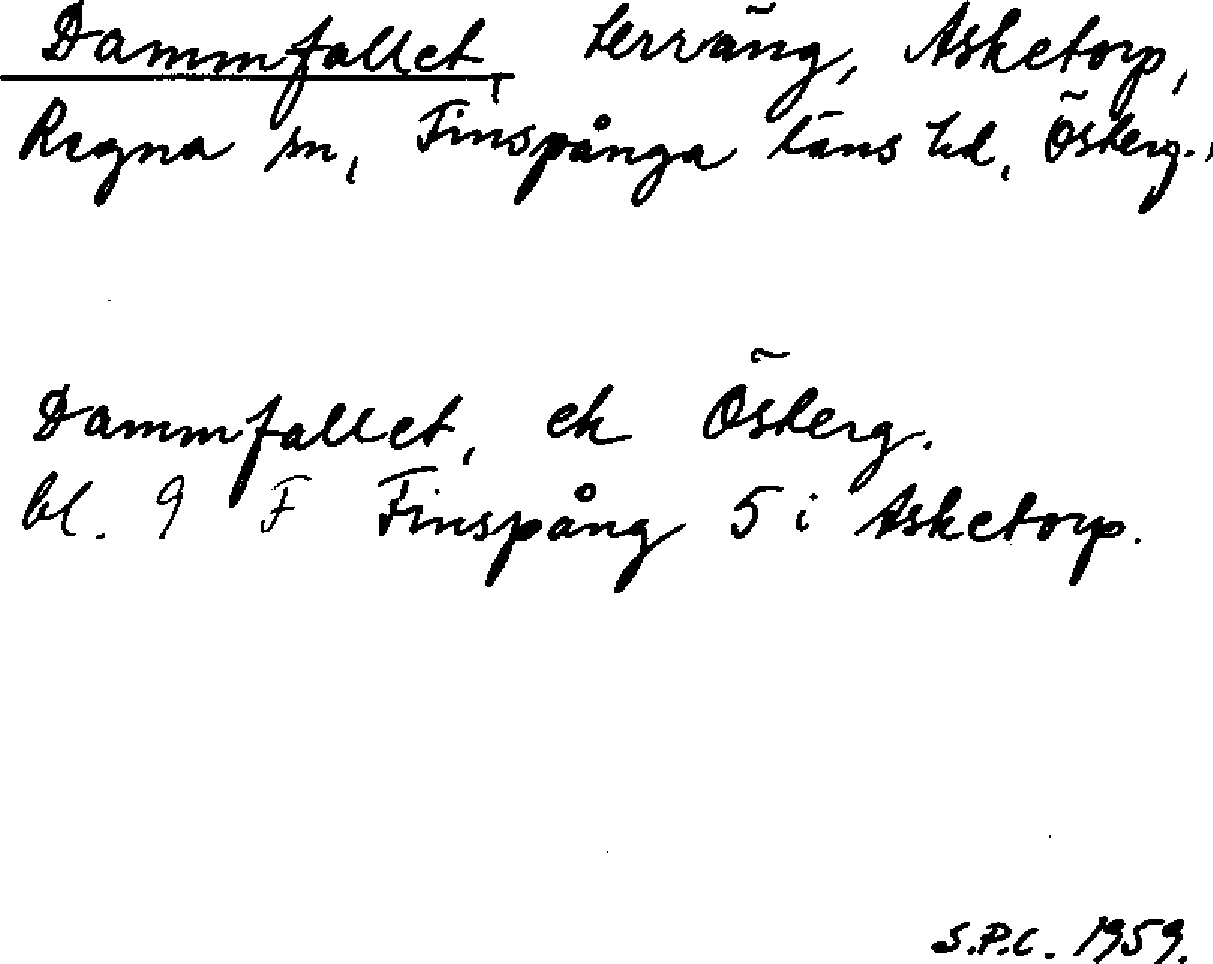 Dammfallet, terräng, Asketorp,
Regna sn, Finspånga läns hd, Österg.,
Dammfallet, ek Österg.
bl. 9 F Finspång 5 i Asketorp.
S.P.C. 1959.